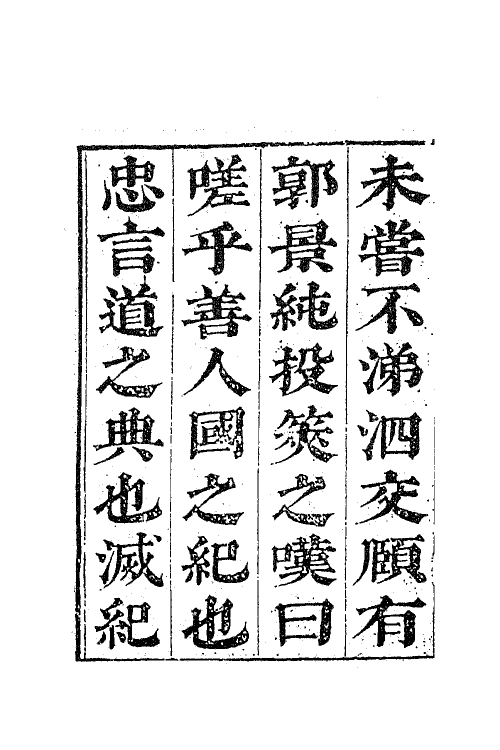 未嘗不涕泗交頤有
郭景純投筴之嘆曰
嗟乎善人國之紀也
忠言道之典也滅紀